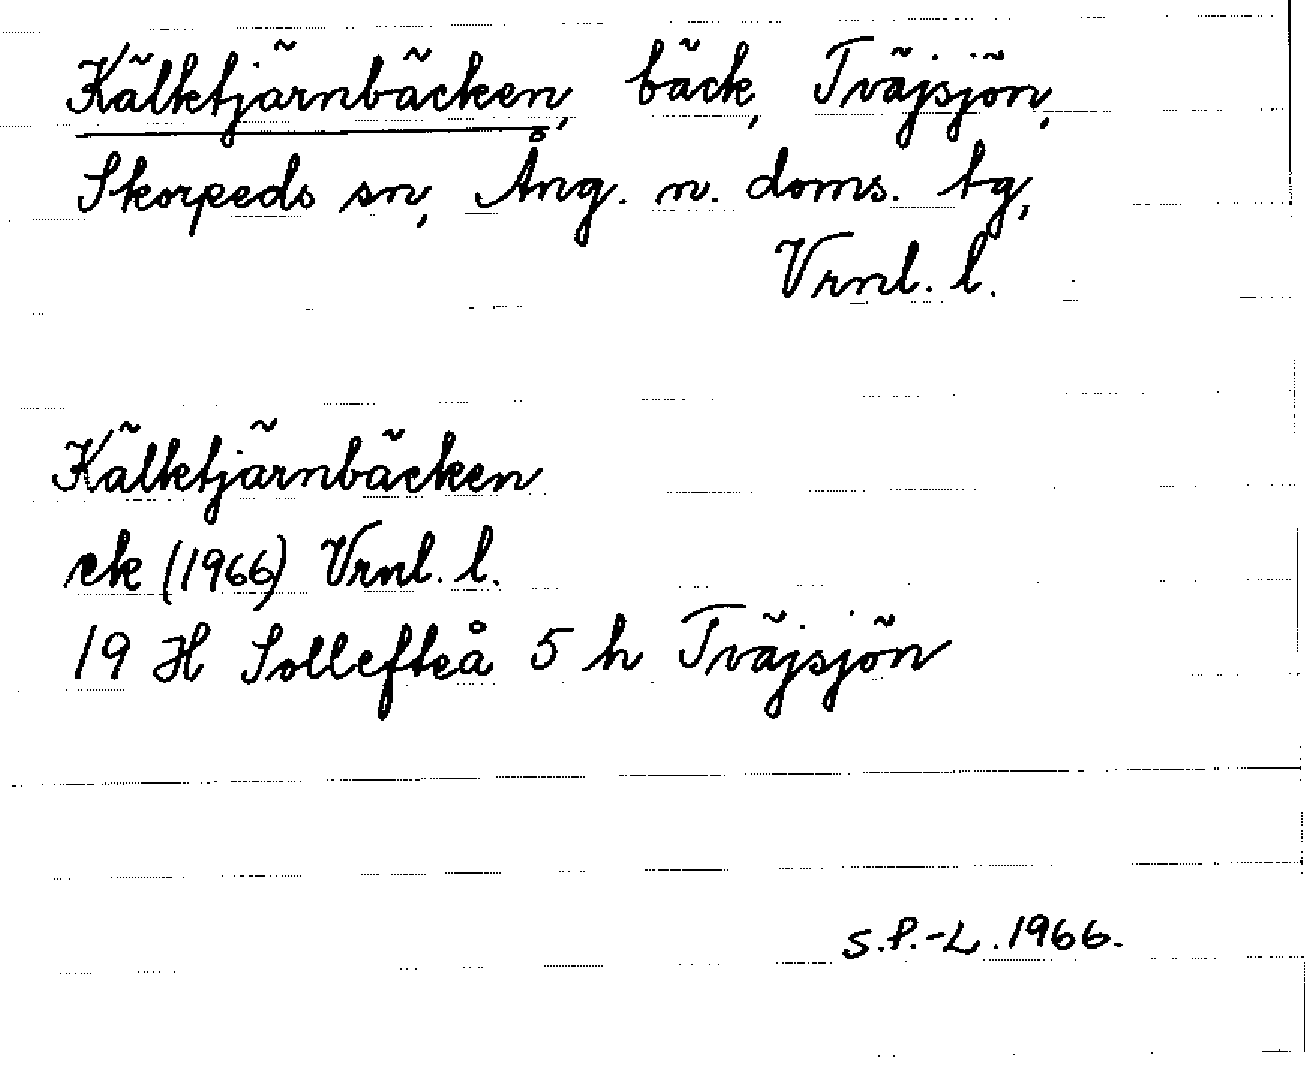 Kälktjärnbäcken, bäck, Tväjsjön,
Skorpeds sn, Ång. n. doms. tg,
Vrnl. l.
Kälktjärnbäcken
ek (1966) Vrnl. l.
19 H Sollefteå 5 h Tväjsjön
S.P.-L. 1966.